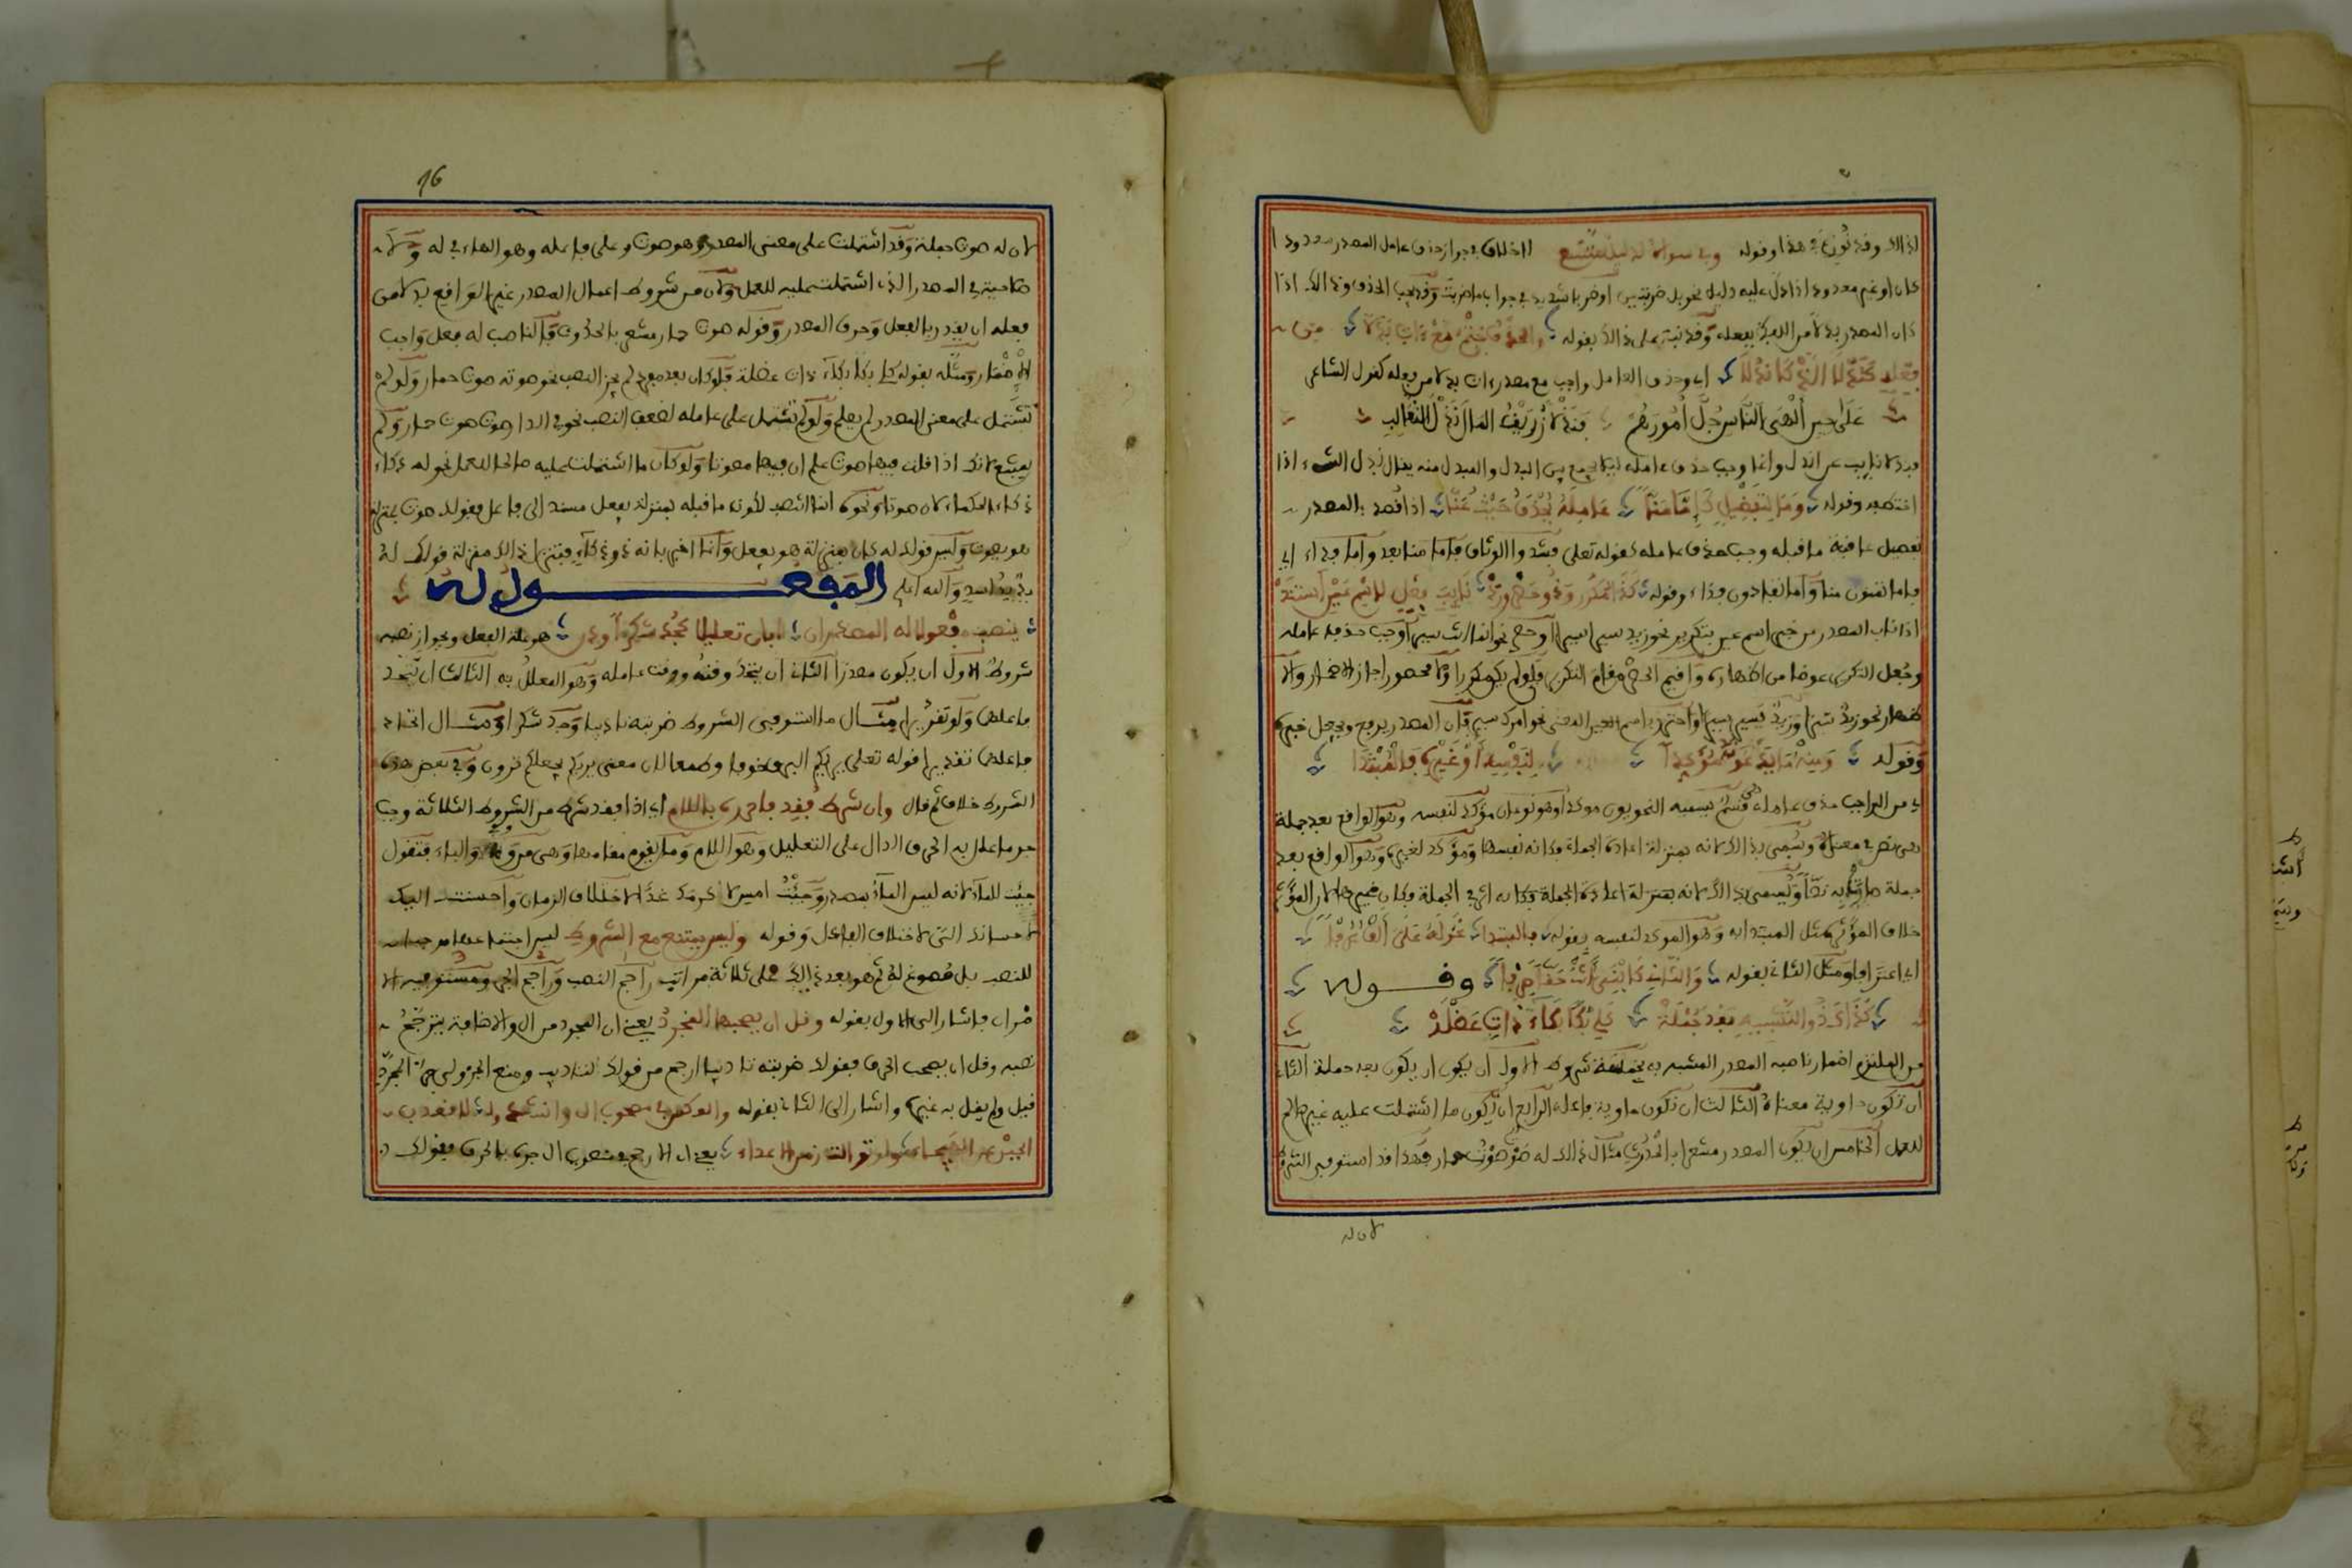 اذالك وقد نوزع في هذا وقوله وفي سواه لدليل متسع لاخلاف في جواز حذف عامل المصدر معدودا
كان او غير معدود اذا دل عليه دليل نحو بل ضربتين او ضربا شديدا في جواب ما ضربت وقد يجب الحذف وذالك اذا
كان المصدر بدلا من اللفظ بفعله وقد نبه على ذالك بقوله والحذف حتم مع ءات بدلا من
فعله كندلا الذ كاندلا اي وحذف العامل واجب مع مصدر ءات بدلا من فعله كقول الشاعر
على حين الهى الناس جل امورهم فندلا زريق المال ندل الثعالب
فندلا نايب عن اندل وانما وجب حذف عامله ليلا يجمع بين البدل والمبدل منه يقال ندل الشيء اذا
اختطفه وقوله وما لتفصيل كاما منا عامله يحذف حيث عنا اذا قصد بالمصدر
تفصيل عاقبة ما قبله وجب حذف عامله كقوله تعلى فشدوا الوثاق فاما منا بعد واما فداء اي
فاما تمنون منا واما تفادون فداء وقوله كذا مكرر وذو حصر ورد نايب فعل لاسم عين استند
اذا ناب المصدر عن خبر اسم عين بتكرير نحو زيد سيرا سيرا او حصر نحو انما انت سيرا وجب حذف عامله
وجعل التكرير عوضا من اظهاره واقيم الحصر مقام التكرير فلو لم يكن مكررا ولا محصورا جاز الاضمار والا
ظهار نحو زيد سيرا وزيد يسير سيرا واحترز باسم العين من المعنى نحو امرك سير فان المصدر يرفع ويجعل خبرا
وقوله ومنه ما يدعونه موكدا لنفسه او غيره فالمبتدا
اي من الواجب حذف عامله قسم يسميه النحويون موكدا وهو نوعان مؤكد لنفسه وهو الواقع بعد جملة
هي نص في معناه وسمي بذالك لانه بمنزلة اعادة الجملة فكانه نفسها ومؤكد لغيره وهو الواقع بعد
جملة صايرة به نصا وسمي بذالك لانه بمنزلة اعادة الجملة فكانه اثر في الجملة فكان غيرها لان المؤثر
خلاف المؤثر مثل المبتدا به وهو الموكد لنفسه بقوله فالمبتدا نحو له على الف عرفا
اي اعترافا ومثل الثاني بقوله والثان كابني انت حقا صرفا وقوله
كذاك ذو التشبيه بعد جملة كلي بكا بكاء ذات عضلة
من الملتزم اضمار ناصبه المصدر المشبه به بخمسة شروط الاول ان يكون بعد جملة الثاني
ان تكون حاوية معناه الثالث ان تكون حاوية فاعله الرابع ان يكون ما اشتملت عليه غير صالح
للعمل الخامس ان يكون المصدر مشعرا بالحدوث مثال ذالك له صوت صوت حمار فهذا قد استوفى الشروط
لان له
16
لان له صوت جملة وقد اشتملت على معنى المصدر وهو صوت وعلى فاعله وهو الهاء في له ولا
صلاحية في المصدر الذي اشتملت عليه للعمل لان من شروط اعمال المصدر غير الواقع بدلا من
فعله ان يقدر بالفعل وحرف المصدر وقوله صوت حمار مشعر بالحدوث فالناصب له فعل واجب
الاضمار ومثله بقوله كلي بكا بكاء ذات عضلة فلو كان بعد مفرد لم يجز النصب نحو صوته صوت حمار ولو لم
تشتمل على معنى المصدر لم يعلم ولو لم تشتمل على عامله لضعف النصب نحو في الدار صوت صوت حمار ولم
يمتنع لانك اذا قلت فيها صوت علم ان فيها مصوتا ولو كان ما اشتملت عليه صالحا للعمل نحو له ذكاء
ذكاء الحكماء لان صوتا ونحوه انما انتصب لكون ما قبله بمنزلة يفعل مسند الى فاعل فقولك هو بمنزلة
هو يصوت وليس قولك له ذكاء بمنزلة هو يفعل وانما اخبر بانه ذو ذكاء فينزل ذالك منزلة قولك له
يد يد اسد والله اعلم المفعول له
ينصب مفعولا له المصدر ان ابان تعليلا كجد شكرا ودن هو علة الفعل ويجوز نصبه
شروط الاول ان يكون مصدرا الثان ان يتحد وقته ووقت عامله وهو المعلل به الثالث ان يتحد
فاعلهما ولو تقديرا مثال ما استوفى الشروط ضربته تاديبا وجد شكرا ومثال اتحاد
فاعلهما تقديرا قوله تعلى يريكم البرق خوفا وطمعا لان معنى يريكم يجعلكم ترون وفي بعض هذه
الشروط خلاف ثم قال وان شرط فقد فاجرره باللام اي اذا فقد شرط من الشروط الثلاثة وجب
جر ما علل به الحرف الدال على التعليل وهو اللام وما يقوم مقامها وهي من وفي والباء فتقول
جيت للماء لانه ليس الماء بمصدر وجئت امس لاكرمك غدا لاختلاف الزمان واحسنت اليك
لاحسانك الي لاختلاف الفاعل وقوله وليس يمتنع مع الشروط ليس اجتماعها موجبا
للنصب بل مسوغ له ثم هو بعد ذالك على ثلاثة مراتب راجح النصب وراجح الجر ومستوفيه الا
مران فاشار الى الاول بقوله وقل ان يصحبها المجرد يعني ان المجرد من ال والاضافة يترجح
نصبه وقل ان يصحب الحرف فقولك ضربته تاديبا ارجح من قولك لتاديب ومنع الجزولي جر المجرد
قيل ولم يقل به غيره واشار الى الثاني بقوله والعكس في مصحوب ال وانشدوا لا اقعد
الجبن عن الهيجاء ولو توالت زمر الاعداء يعني ان الارجح في مصحوب ال جره بالحرف فقولك